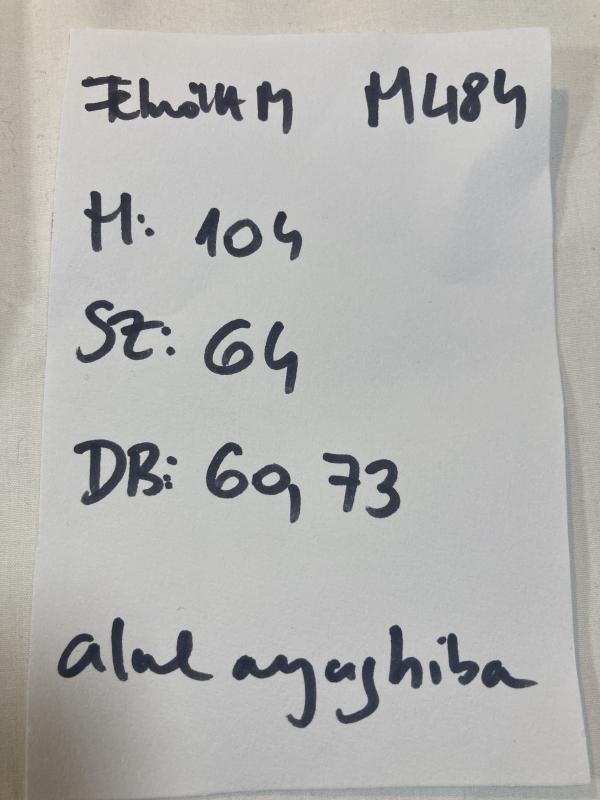 M484
H: 104
SZ: 64
DB: 60,73
alul anyaghiba